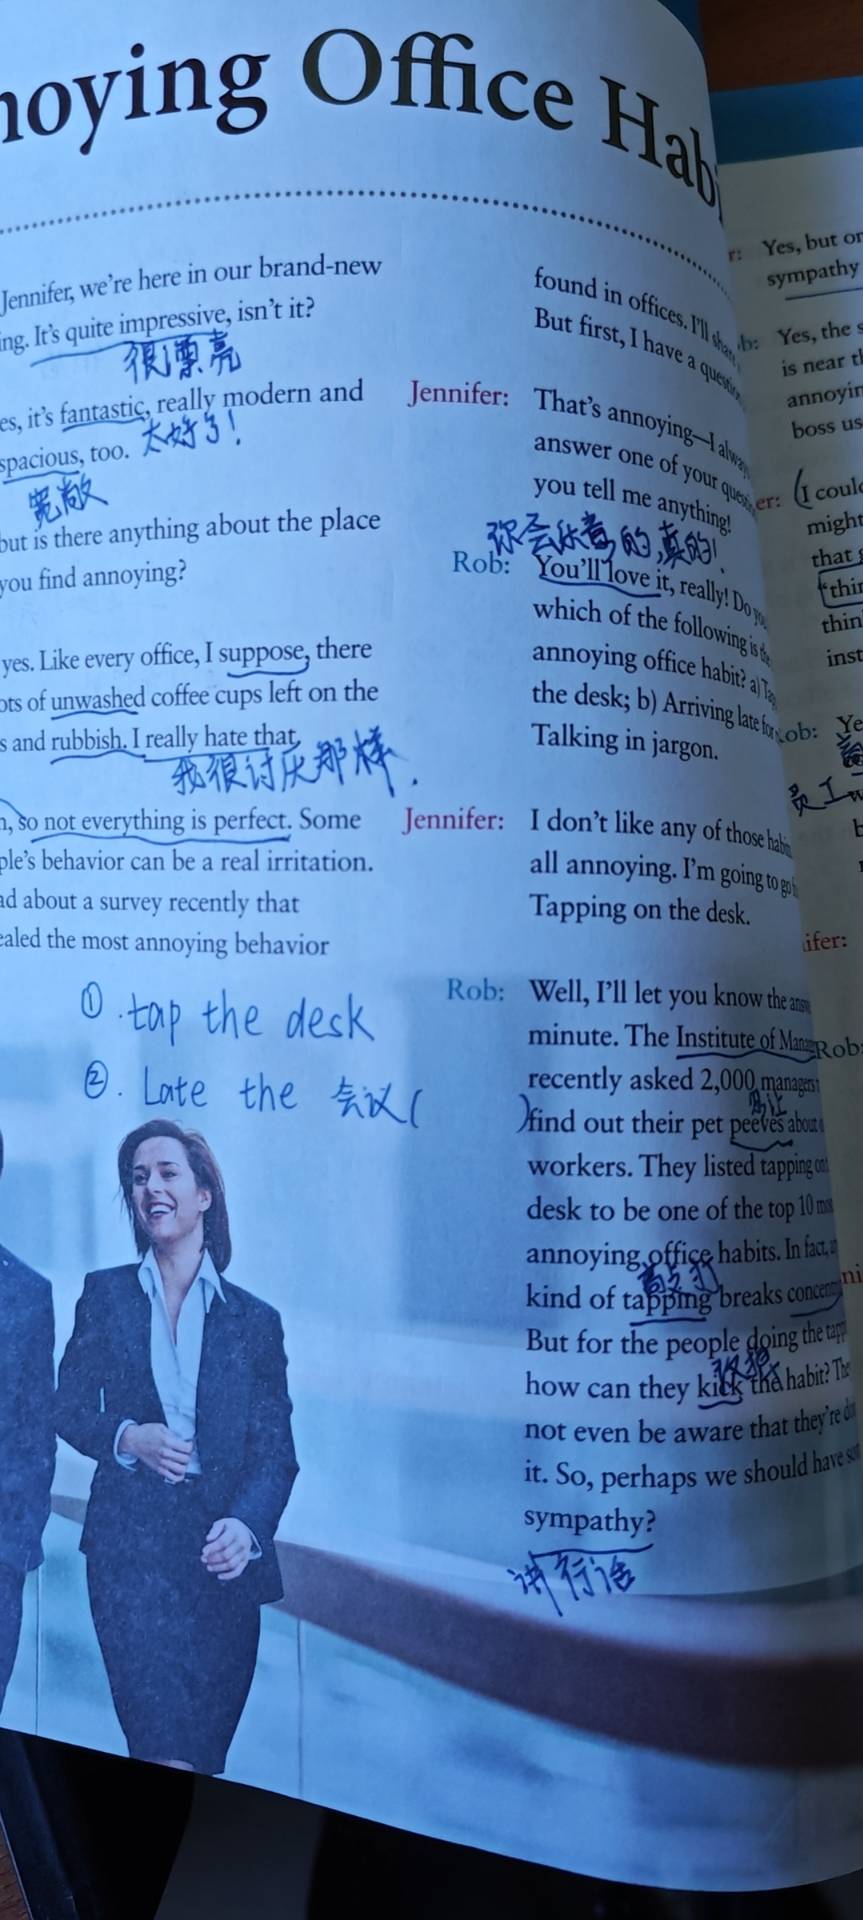 noying Office Hab
Jennifer, we're here in our brand-new
ing. It's quite impressive, isn't it?
很漂亮
es, it's fantastic, really modern and
太好了!
spacious, too.
宽敞
but is there anything about the place
you find annoying?
yes. Like every office, I suppose, there
ots of unwashed coffee cups left on the
s and rubbish. I really hate that.
我很讨厌那样.
n, so not everything is perfect. Some
ple's behavior can be a real irritation.
ad about a survey recently that
ealed the most annoying behavior
①.tap the desk
②. Late the 会议(        )
found in offices. I'll share
But first, I have a question
Jennifer: That's annoying—I always
answer one of your
you tell me anything!
你会乐意的,真的!
Rob: You'll love it, really! Do you
which of the following is the
annoying office habit? a) Ta
the desk; b) Arriving late for
Talking in jargon.
Jennifer: I don't like any of those
all annoying. I'm going to go
Tapping on the desk.
Rob: Well, I'll let you know the
minute. The Institute of
recently asked 2,000 managers
find out their pet peeves about
workers. They listed tapping on
desk to be one of the top 10
annoying office habits. In fact,
kind of tapping breaks
But for the people doing the
how can they kick the habit? The
not even be aware that they're
it. So, perhaps we should have
sympathy?
行话
r: Yes, but
sympathy
b: Yes, the
is near
annoyin
boss us
er: (I coul
might
that
"thin
thin
inst
ob: Ye
员工
ifer:
Rob:
ni